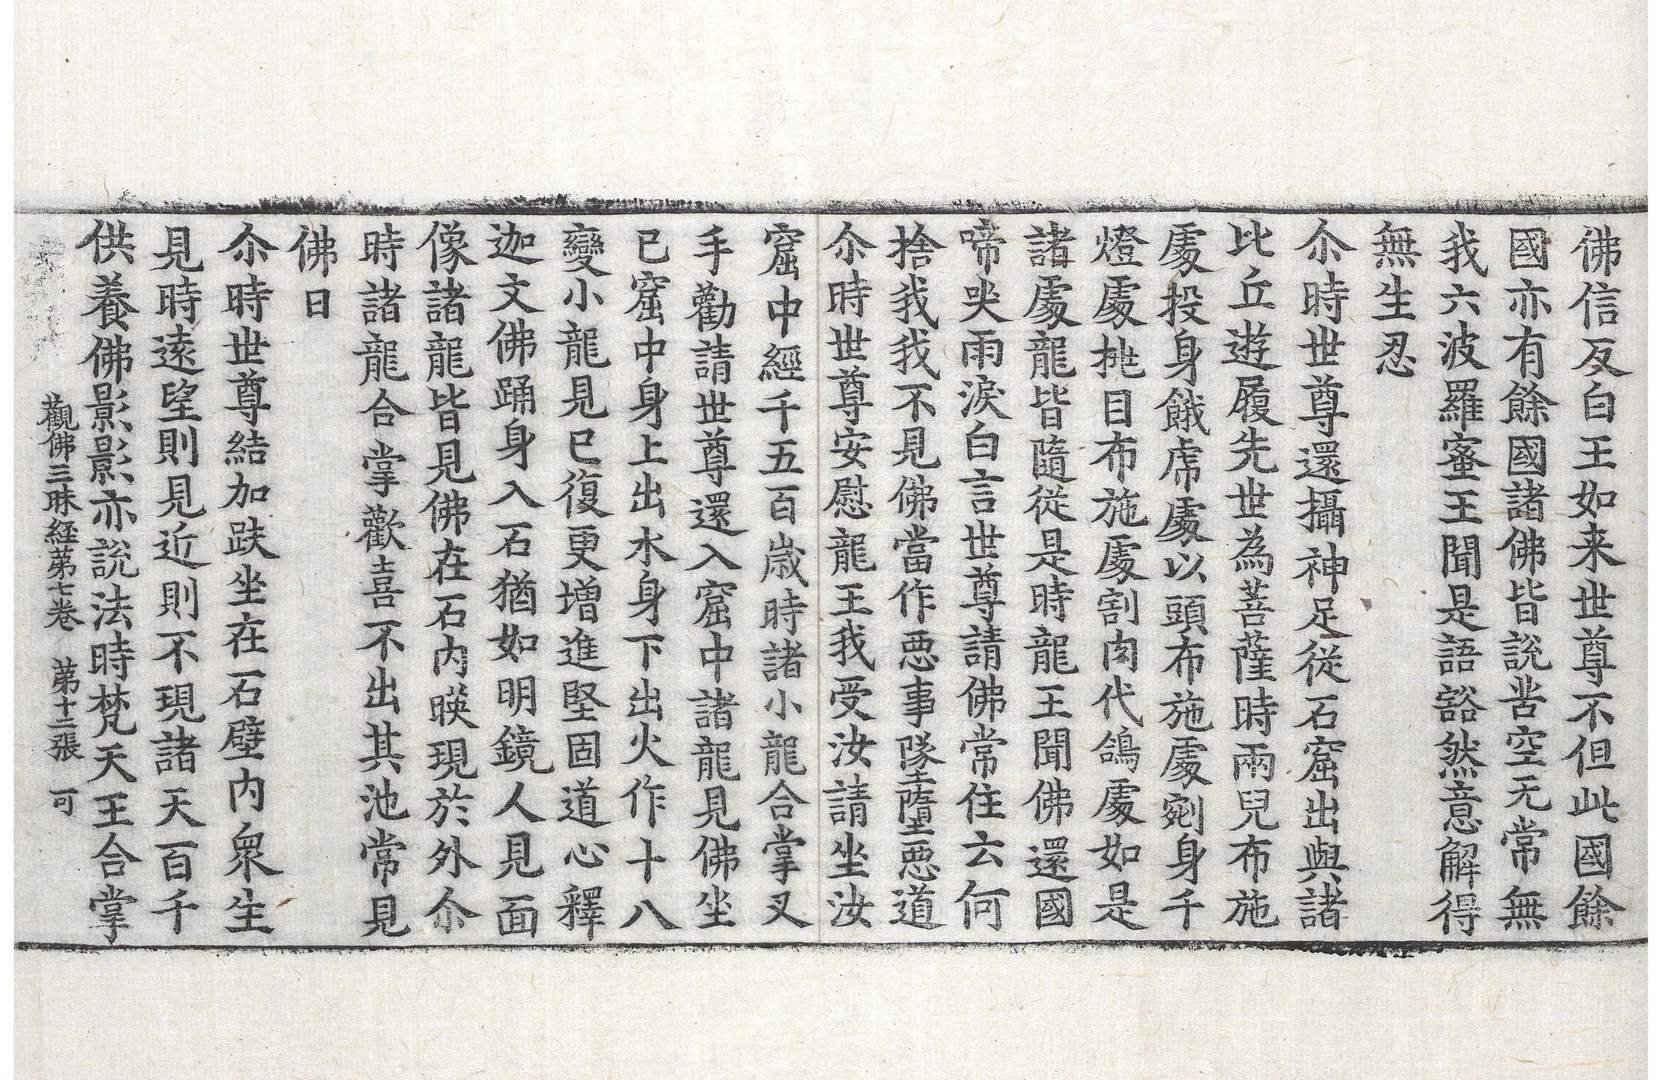 佛信反白王如来世尊不但此國餘
國亦有餘國諸佛皆說苦空无常無
我六波羅蜜王聞是語豁然意解得
無生忍
尒時世尊還攝神足從石窟出與諸
比丘遊履先世為菩薩時兩兒布施
處投身餓虎處以頭布施處剜身千
燈處挑目布施處割肉代鴿處如是
諸處龍皆隨從是時龍王聞佛還國
啼哭雨淚白言世尊請佛常住云何
捨我我不見佛當作惡事墜墮惡道
尒時世尊安慰龍王我受汝請坐汝
窟中經千五百歲時諸小龍合掌叉
手勸請世尊還入窟中諸龍見佛坐
已窟中身上出水身下出火作十八
變小龍見已復更增進堅固道心釋
迦文佛踊身入石猶如明鏡人見面
像諸龍皆見佛在石内暎現於外尒
時諸龍合掌歡喜不出其池常見
佛日
尒時世尊結加趺坐在石壁内衆生
見時遠望則見近則不現諸天百千
供養佛影影亦說法時梵天王合掌
觀佛三昧経苐七卷 苐十二張 可